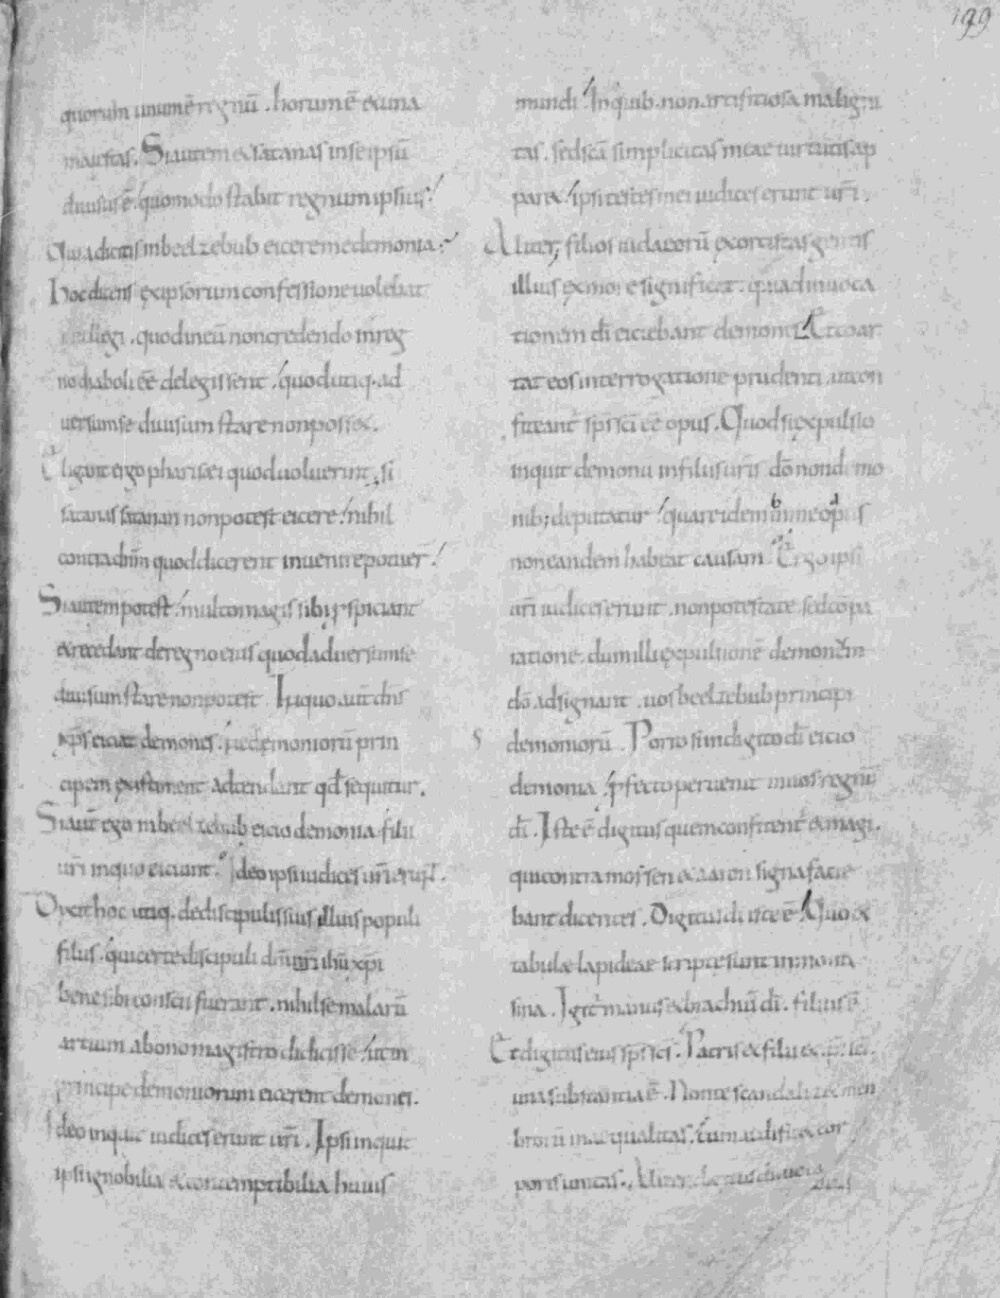 199
quorum unum ē regnū. horum ē et una
maiestas. Si autem et satanas in se ipsū
diuisus ē. quomodo stabit regnum ipsius?
Quia dicitis in beelzebub eicere me demonia?
Hoc dicens ex ipsorum confessione uolebat
intellegi. quod in eū non credendo in reg
no diaboli ēē delegissent. quod utiq. ad
uersum se diuisum stare non posset.
Eligant ergo pharisei quod uoluerint, si
satanas satanan non potest eicere. nihil
contra dn̄m quod dicerent inuenire potuer̄
Si autem potest. multo magis sibi p̱spiciant
et recedant de regno eius quod aduersum se
diuisum stare non potest. In quo aut̄ dn̄s
xp̄s eiciat demones. ne demoniorū prin
cipem existiment adtendant qd̄ sequitur.
Si aut̄ ego in beelzebub eicio demonia. filii
ur̄i in quo eiciunt. Ideo ipsi iudices ur̄i erunt.
Dixit hoc utiq. de discipulis suis illius populi
filiis. qui certe discipuli dn̄i nr̄i ihū xp̄i
bene sibi conscii fuerant. nihil se malarū
artium a bono magistro didicisse. ut in
principe demoniorum eicerent demones.
Ideo inquit iudices erunt ur̄i. Ipsi inquit
ipsi ignobilia et contemptibilia huius
mundi. In quib. non artificiosa maligni
tas. sed scā simplicitas meae uirtutis ap
paret. Ipsi testes mei iudices erunt ur̄i.
Aliter, filios iudaeorū exorcistas gentis
illius ex more significat. qui ad inuoca
tionem dī eiciebant demones. Et coar
tat eos interrogatione prudenti. ut con
fiteant̄ sp̄s sc̄i ēē opus. Quod si expulsio
inquit demonū in filiis ur̄is dō non demo
nib; deputatur. quare idem in me opus
non eandem habeat causam. Ergo ipsi
ur̄i iudices erunt. non potestate. sed cōpa
ratione. dum illi expulsionē demonum
dō adsignant. uos beelzebub principi
5 demoniorū. Porro si in digito dī eicio
demonia. p̱fecto peruenit in uos regnū
dī. Iste ē digitus quem confitent̄ et magi.
qui contra moisen et aaron signa facie
bant dicentes. Digitus dī iste ē. Quo et
tabulae lapideae scriptae sunt in monte
sina. Igit̄ manus et brachiū dī. filius ē
Et digitus eius sp̄s sc̄s. Patris et filii et sp̄s sc̄i.
una substantia ē. Non te scandalizet mem
brorū inaequalitas. cum aedificet cor
poris unitas. Aliter